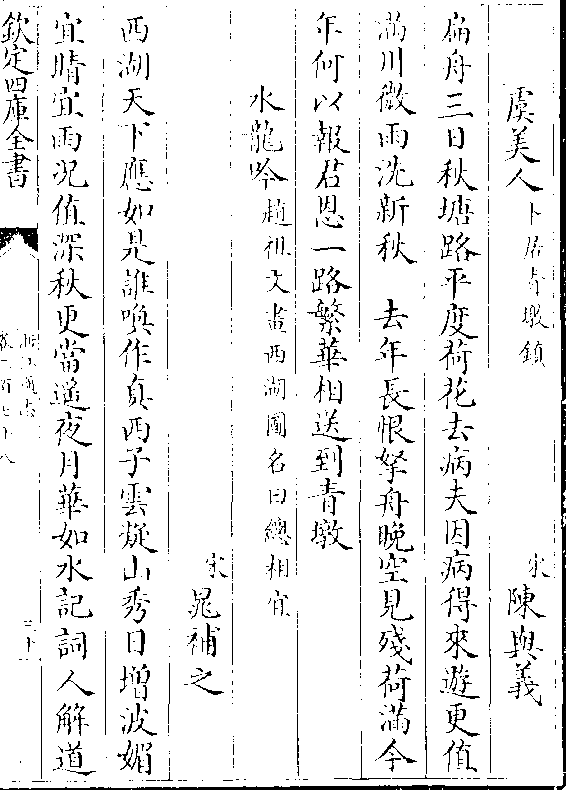 虞美人卜居青墩鎮
宋 陳與義
扁舟三日秋塘路平度荷花去病夫因病得來遊更值
滿川微雨洗新秋 去年長恨拏舟晚空見殘荷滿今
年何以報君恩一路繁華相送到青墩
水龍吟趙祖文畫西湖圖名曰總相宜
宋 晁補之
西湖天下應如是誰喚作真西子雲凝山秀日增波媚
宜晴宜雨況值深秋更當遥夜月華如水記詞人解道
欽定四庫全書
浙江通志
三十